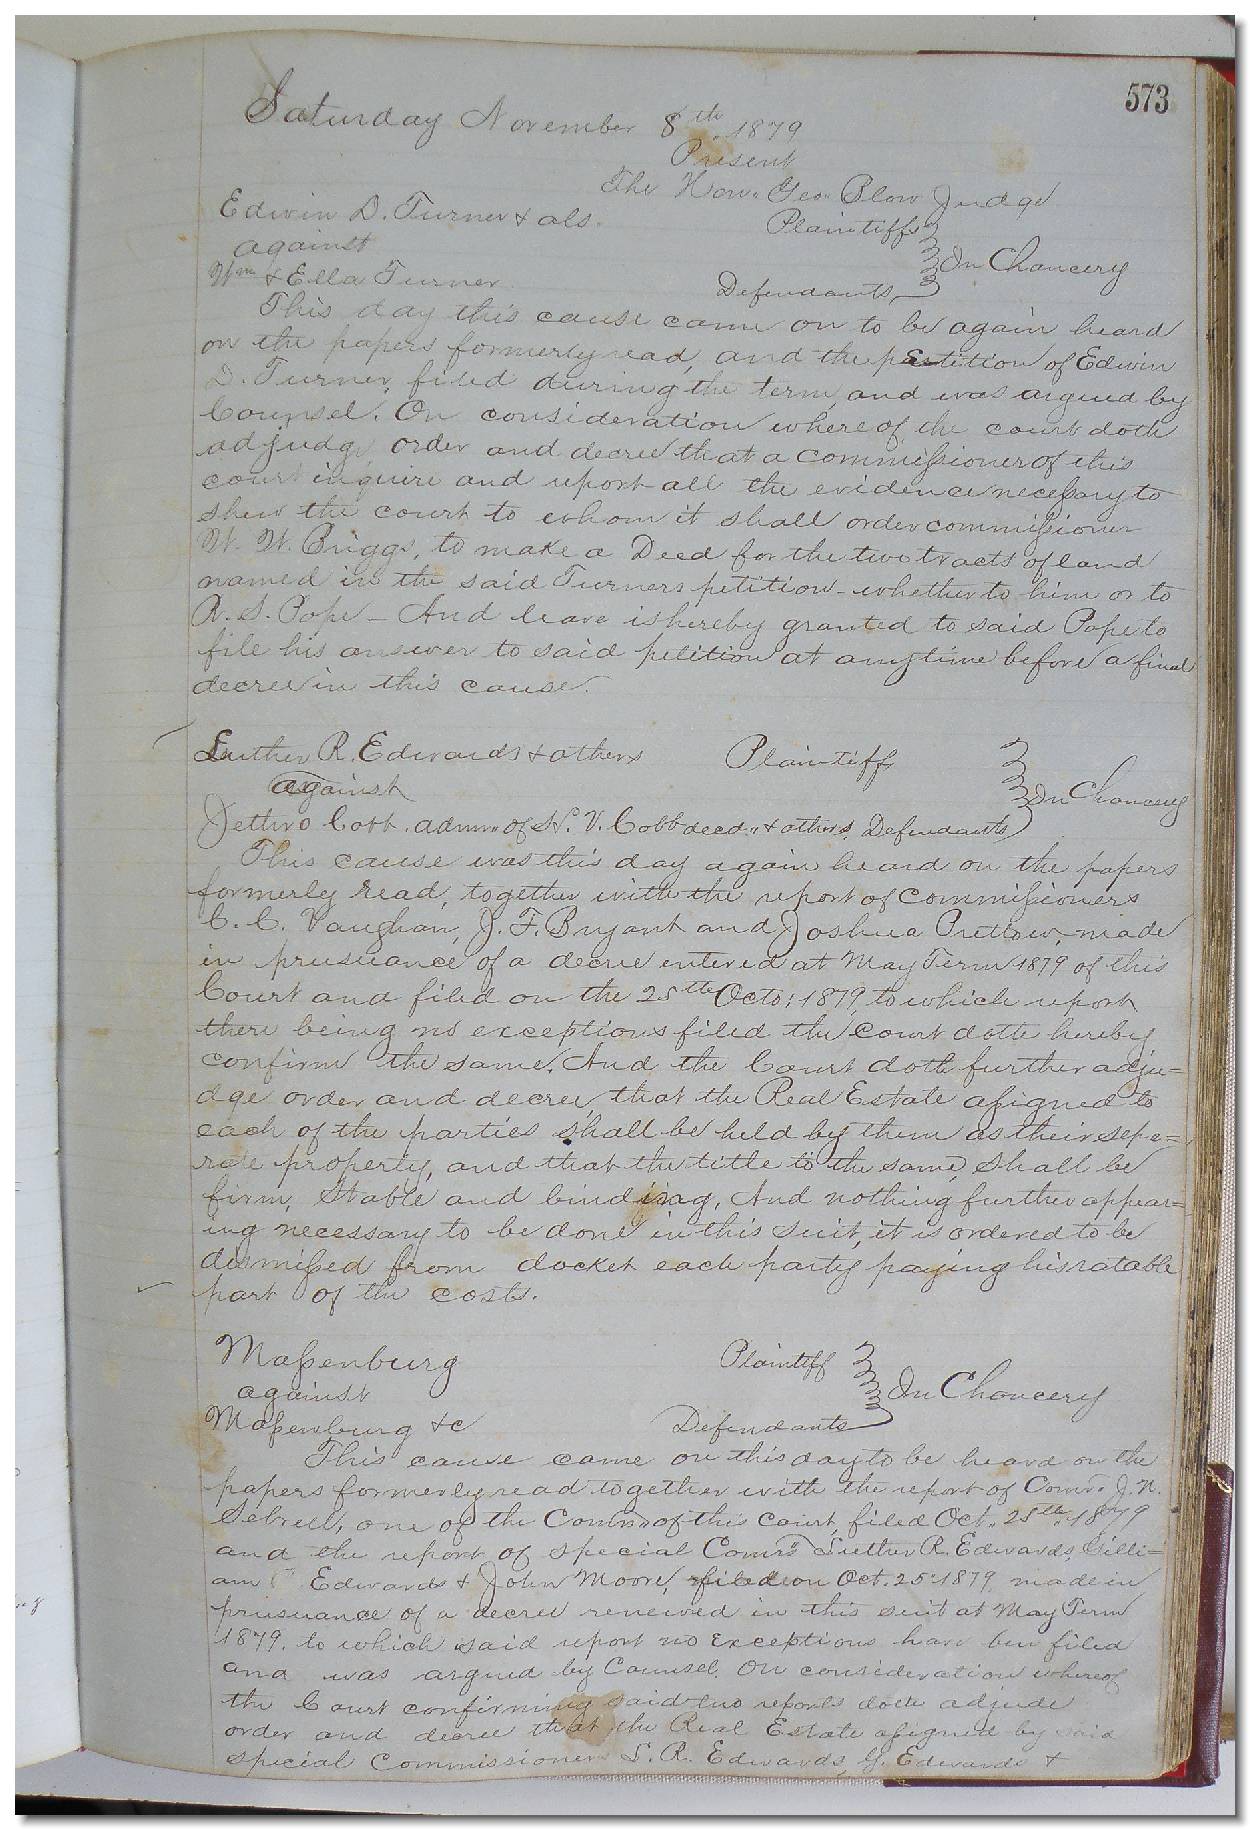 573
Saturday November 8th 1879
Present
The Hon. Geo. Blow Judge
Edwin D. Turner & als. Plaintiffs
against In Chancery
Wm & Ella Turner Defendants
This day this cause came on to be again heard
on the papers formerly read, and the petition of Edwin
D. Turner, filed during the term, and was argued by
Counsel. On consideration whereof the court doth
adjudge, order and decree that a commissioner of this
court inquire and report all the evidence necessary to
shew the court to whom it shall order commissioner
W. W. Briggs, to make a Deed for the two tracts of land
named in the said Turners petition - whether to him or to
R. S. Pope - And leave is hereby granted to said Pope to
file his answer to said petition at anytime before a final
decree in this cause.
Luther R. Edwards & others Plaintiff
against In Chancery
Jethro Cobb admr of N. V. Cobb decd. & others Defendants
This cause was this day again heard on the papers
formerly read, together with the report of Commissioners
C. C. Vaughan, J. F. Bryant and Joshua Pretlow, made
in prusuance of a decree entered at May Term 1879 of this
Court and filed on the 25th Octo: 1879, to which report
there being no exceptions filed the Court doth hereby
confirm the same. And the Court doth further adju=
dge order and decree, that the Real Estate assigned to
each of the parties shall be held by them as their sepe=
rate property, and that the title to the same, shall be
firm, stable and binding. And nothing further appear=
ing necessary to be done in this suit, it is ordered to be
dismissed from docket each party paying his ratable
part of the costs.
Massenburg Plaintiff
against In Chancery
Massenburg &c Defendants
This cause came on this day to be heard on the
papers formerly read together with the report of Comr. J. N.
Sebrell, one of the Comrs of this Court, filed Oct. 25th 1879
and the report of special Comrs Luther R. Edwards, Gilli=
am Edwards & John Moore, filed on Oct. 25: 1879, made in
prusuance of a decree renewed in this suit at May Term
1879. to which said report no exceptions have ben filed
and was argued by Counsel. On consideration whereof
the Court confirming said two reports doth adjude
order and decree that the Real Estate assigned by said
special Commissioners L. R. Edwards, G. Edwards &